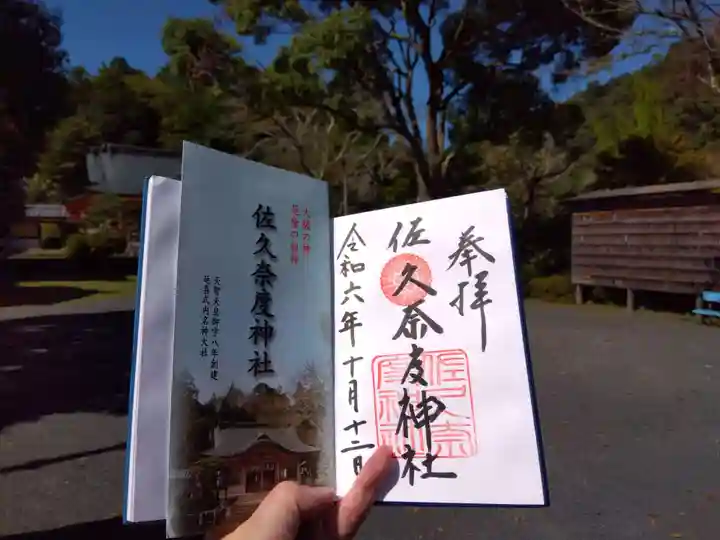 奉拝
佐久奈度神社
令和六年十月十二日
佐久奈度神社
天智天皇御宇八年創建
延喜式内名神大社